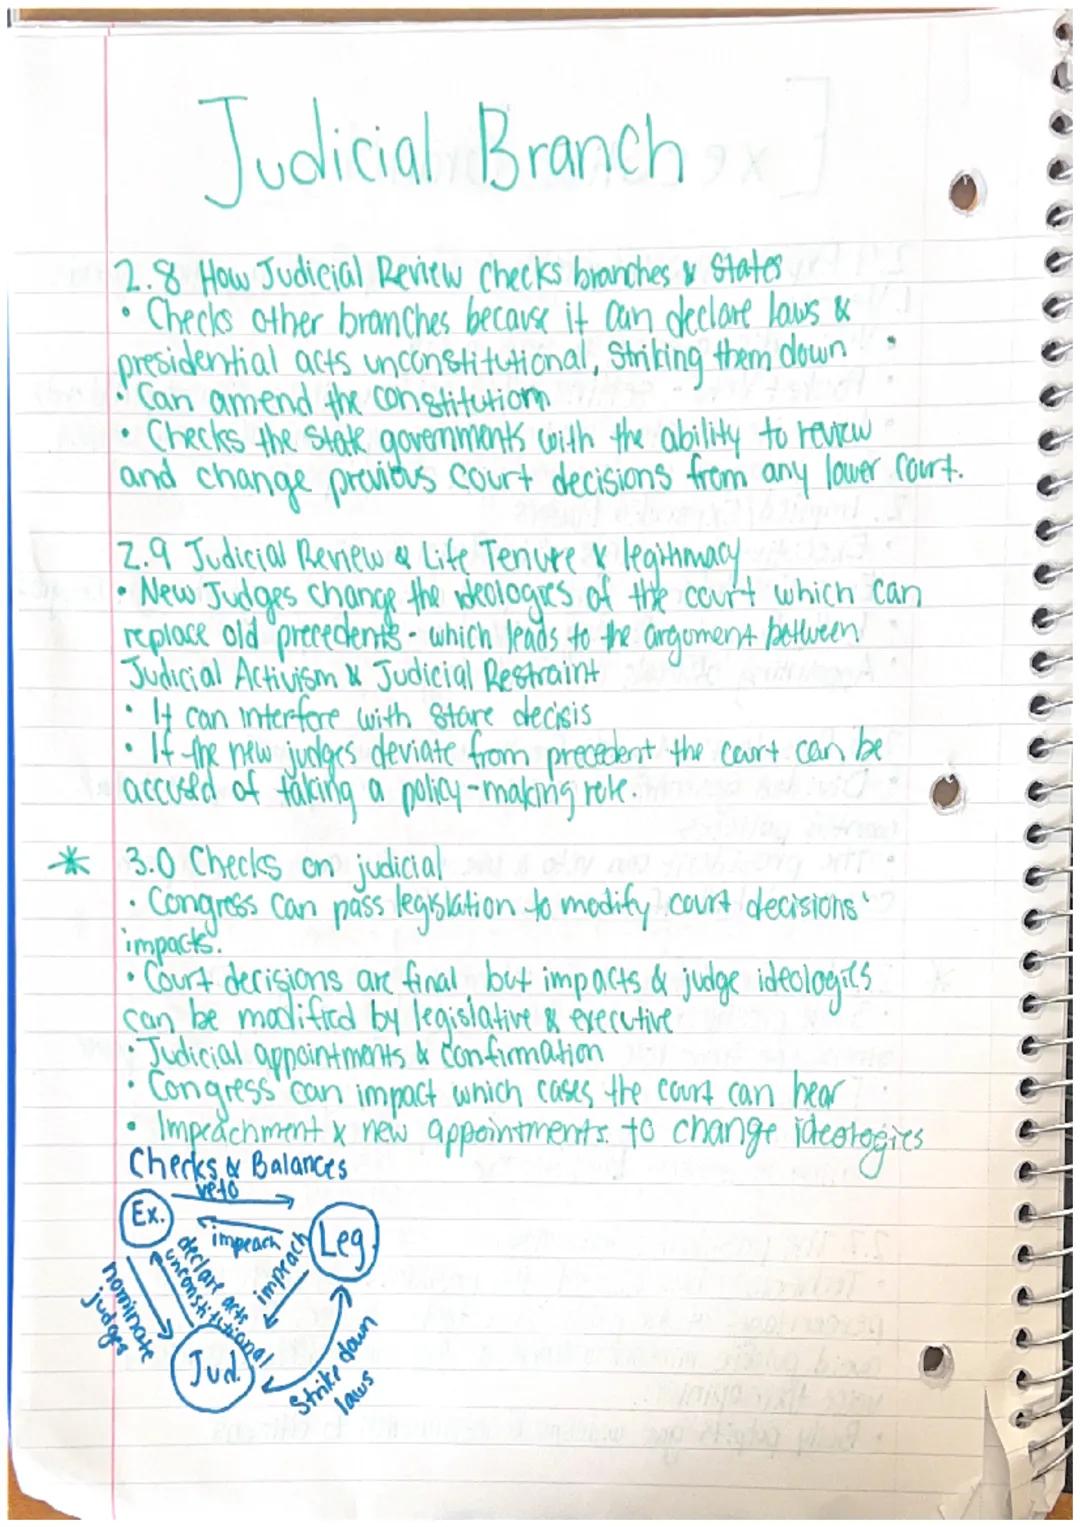 Judicial Branch
2.8 How Judicial Review checks branches & States
• Checks other branches because it can declare laws &
presidential acts unconstitutional, striking them down
• Can amend the constitution
• Checks the state governments with the ability to review
and change previous court decisions from any lower court.
2.9 Judicial Review & Life Tenure & legitimacy
• New Judges change the ideologies of the court which can
replace old precedents - which leads to the argument between
Judicial Activism & Judicial Restraint
• It can interfere with stare decisis
• If the new judges deviate from precedent the court can be
accused of taking a policy-making role.
* 3.0 Checks on judicial
• Congress can pass legislation to modify court decisions'
impacts.
• Court decisions are final but impacts & judge ideologies
can be modified by legislative & executive
• Judicial appointments & confirmation
• Congress can impact which cases the court can hear
• Impeachment & new appointments to change ideologies
Checks & Balances
veto
Ex.
impeach
Leg.
declare acts
unconstitutional
impeach
nominate
judges
Jud.
Strike down
laws